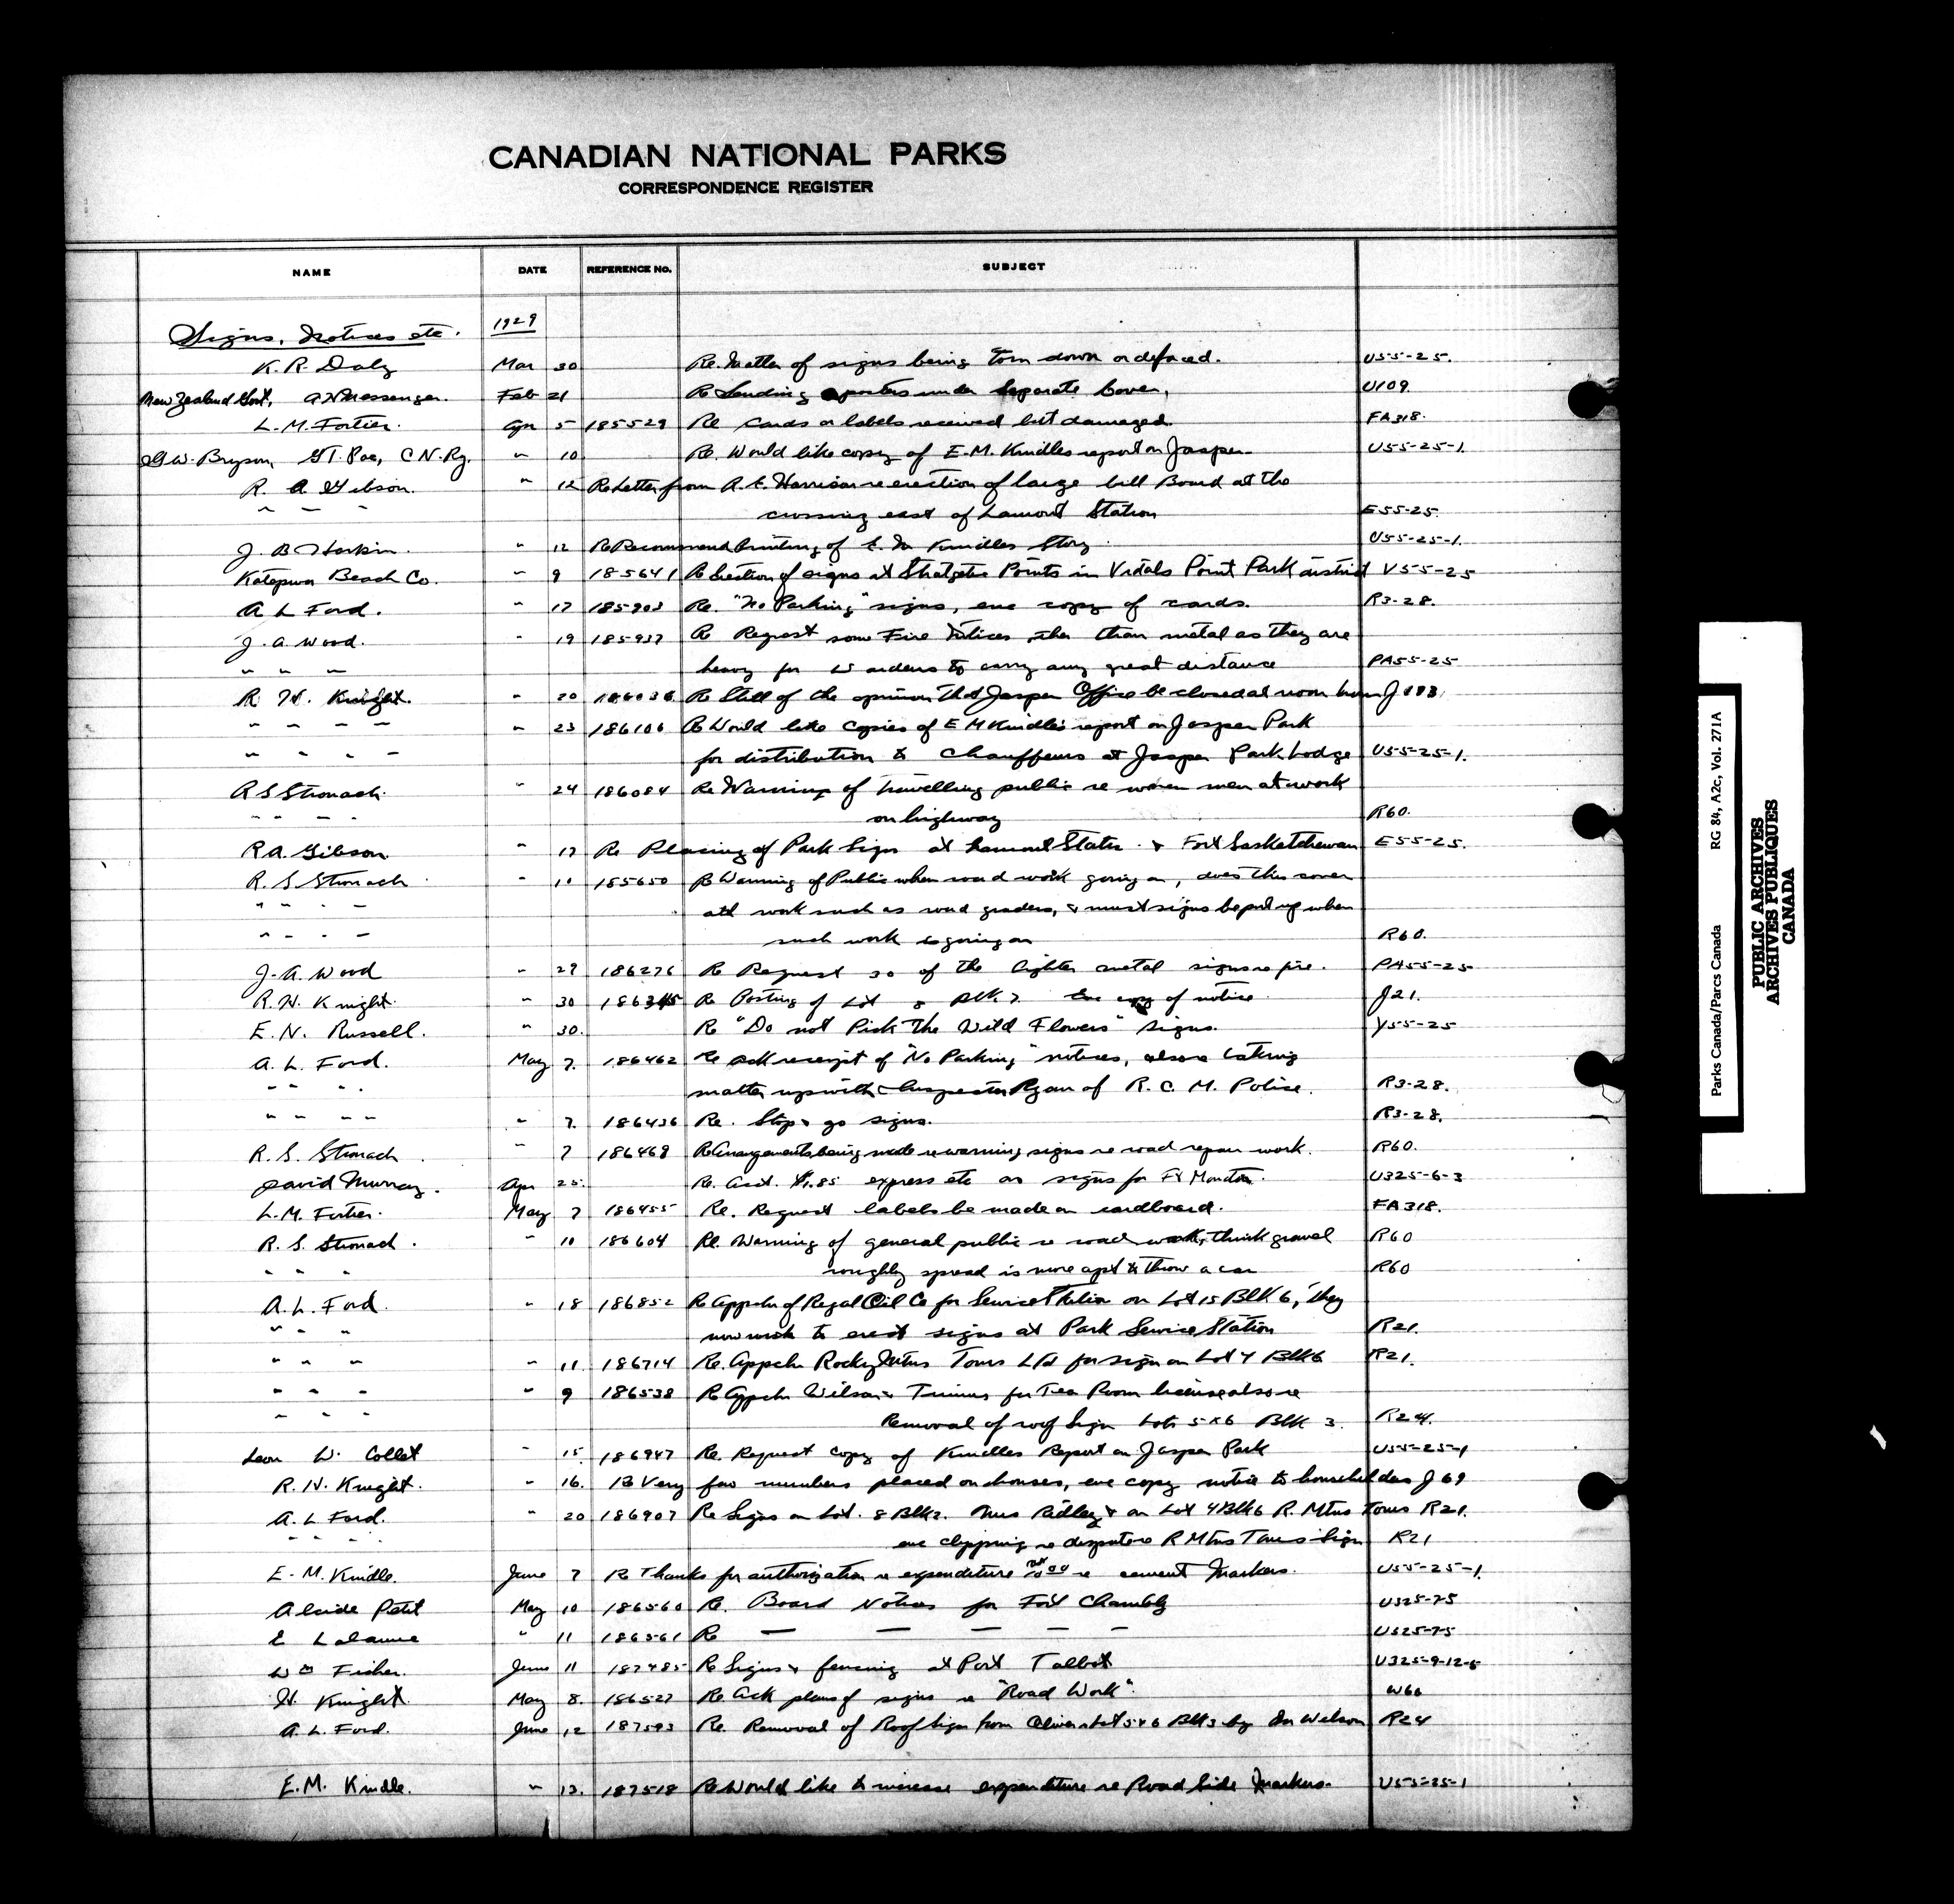 CANADIAN NATIONAL PARKS
CORRESPONDENCE REGISTER
NAME DATE REFERENCE No. SUBJECT
Signs, Notices etc. 1929
K. R. Daly Mar 30 Re. Matter of signs being torn down or defaced. U55-25.
New Zealand Govt, A N Messenger. Feb 21 Re Sending posters under separate cover, U109
L. M. Fortier. Apr 5 185529 Re Cards or labels received but damaged. FA318.
W. Bryson, C N. Ry. " 10 Re. Would like copy of E. M. Kindles report on Jasper. U55-25-1.
R. A Gibson. " 12 Re Letter from A. E. Harrison re erection of large bill Board at the
" " " crossing east of Lamont Station E55-25.
J. B Harkin. " 12 Re Recommend Printing of E. M Kindles Story. U55-25-1.
Katepwa Beach Co. " 9 185641 Re Erection of signs at Stratgetic Points in Vidals Point Park district V55-25
A L Ford. " 17 185903 Re. "No Parking" signs, enc copy of cards. R3-28.
J. A. Wood. " 19 185937 Re Request some Fire Notices other than metal as they are
" " " heavy for Wardens to carry any great distance PA55-25
R. H. Knight. " 20 186036 Re Still of the opinion that Jasper Office be closed at noon hour J183
" " " " " 23 186106 Re Would like Copies of E M Kindle's report on Jasper Park
" " " " for distribution to Chauffeurs at Jasper Park Lodge U55-25-1.
R S Stronach. " 24 186084 Re Warning of travelling public re when men at work
" " " " on highway R60.
R A. Gibson " 17 Re Placing of Park Sign at Lamont Station & Fort Saskatchewan E55-25.
R. S Stronach. " 11 185650 Re Warning of Public when road work going on, does this cover
" " " " all work such as road graders, & must signs be put up when
" " " " such work is going on R60.
J. A. Wood " 29 186276 Re Request 30 of the lighter metal signs re fire. PA55-25
R. H. Knight. " 30 186345 Re Posting of Lot 8 Blk 7. Enc copy of notice. J21.
E. N. Russell. " 30. Re "Do not Pick the Wild Flowers" signs. Y55-25
A. L. Ford. May 7. 186462 Re Ack receipt of "No Parking" notices, also re taking
" " " " matter up with Inspector Ryan of R. C. M. Police. R3-28.
" " " " " 7. 186436 Re. Stop & go signs. R3-28.
R. S. Stronach. " 7 186468 Re Arrangements being made re warning signs re road repair work. R60.
David Murray. Apr 25. Re. Acct. $1.85 express etc on signs for Ft Moncton. U325-6-3
L. M. Fortier. May 7 186455 Re. Request labels be made on cardboard. FA318.
R. S. Stronach. " 10 186604 Re. Warning of general public re road work, think gravel R60
" " " roughly spread is more apt to throw a car R60
A. L. Ford. " 18 186852 Re Appctn of Regal Oil Co for Service Station on Lot 15 Blk 6, they
" " " now wish to erect signs at Park Service Station R21.
" " " " 11. 186714 Re. Appctn Rocky Mtns Tours Ltd for sign on Lot 4 Blk 6 R21.
" " " " 9 186538 Re Appctn Wilson & for Tea Room license also re
" " " Removal of roof Sign Lots 5 & 6 Blk 3. R24.
Leon W. Collet " 15. 186947 Re. Request copy of Kindles Report on Jasper Park U55-25-1
R. H. Knight. " 16. Re Very few numbers placed on houses, enc copy notice to householders J 69
A. L Ford. " 20 186907 Re Signs on Lot. 8 Blk 2. Mrs Ridley & on Lot 4 Blk 6 R. Mtns Tours R21.
" " " enc clipping re dispute re R Mtns Tours Sign R21
E. M. Kindle. June 7 Re Thanks for authorization re expenditure re cement Markers. U55-25-1.
Alcide Petit May 10 186560 Re. Board Notices for Fort Chambly U325-75
E Lalanne " 11 186561 Re — — — — — U325-75
Wm Fisher. June 11 187485 Re Signs & fencing at Port Talbot U325-9-12-5
H. Knight. May 8. 186527 Re Ack plans of signs re "Road Work". W60
A. L. Ford. June 12 187593 Re. Removal of Roof Sign from Lot 5 & 6 Blk 3 by Wilson R24
E. M. Kindle. " 13. 187518 Re Would like to increase expenditure re Road Side Markers. U55-25-1
Parks Canada/Parcs Canada RG 84, A2c, Vol. 271A
PUBLIC ARCHIVES
ARCHIVES PUBLIQUES
CANADA